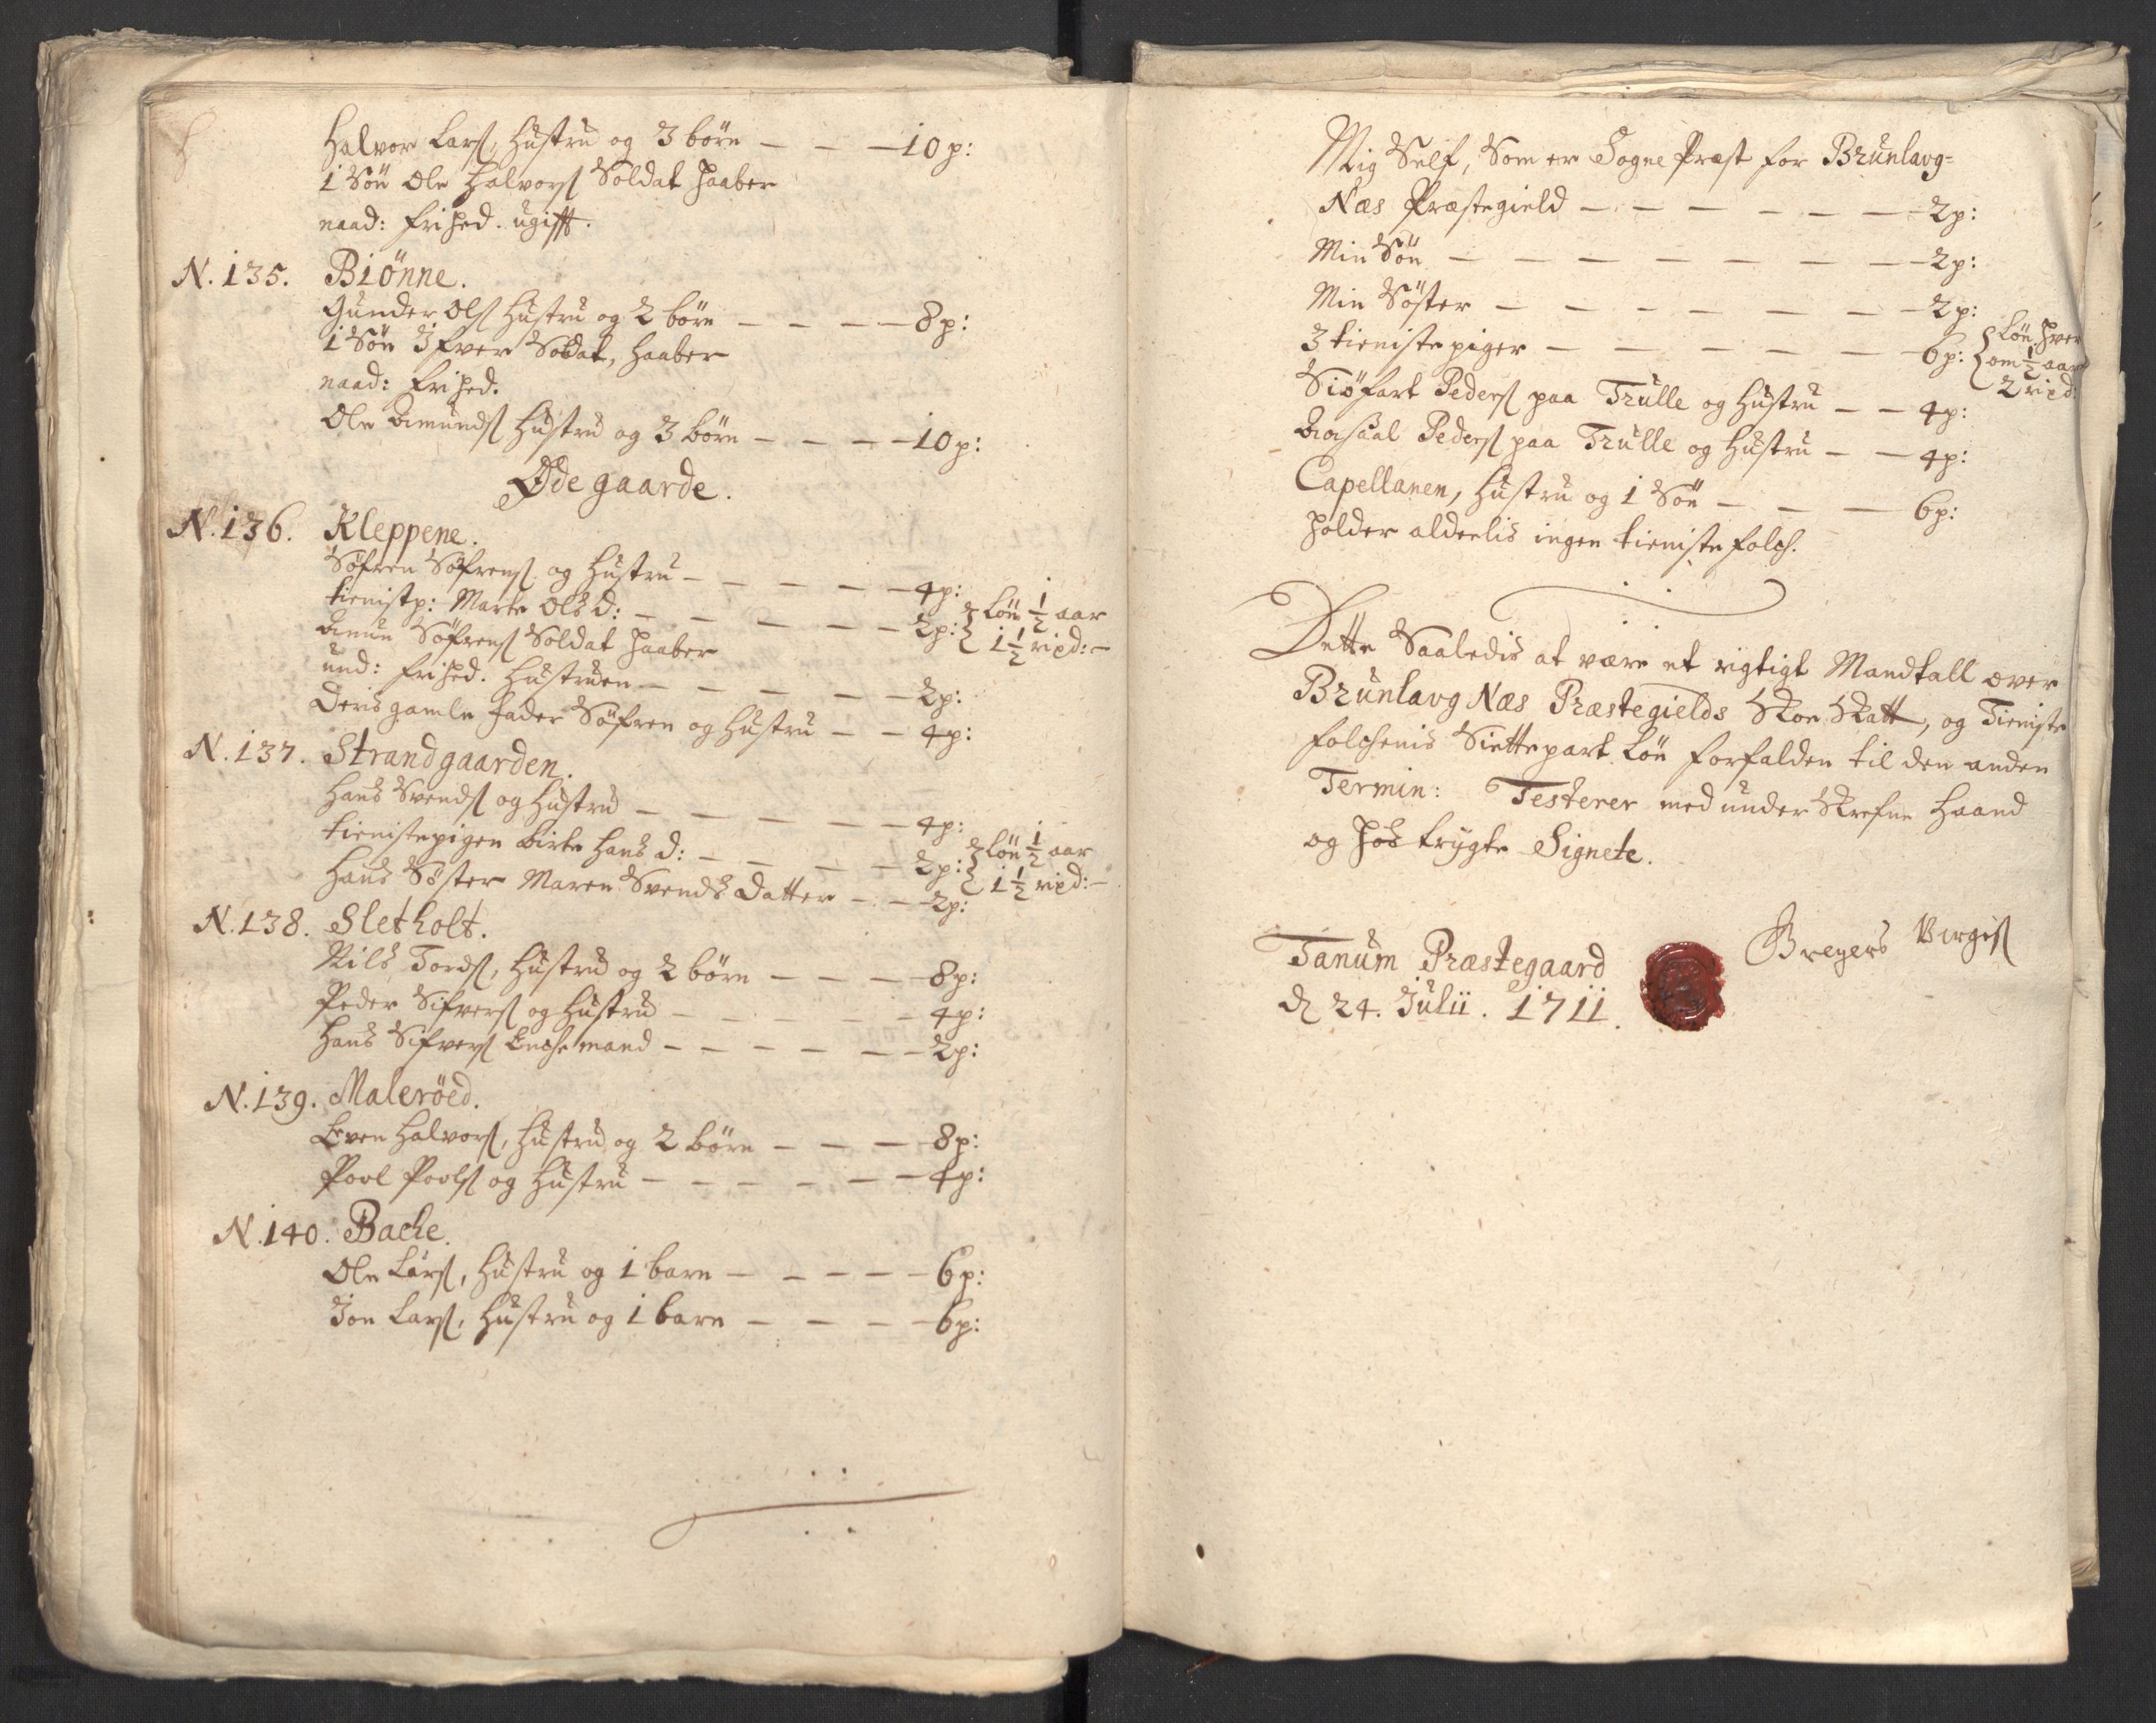 Halvor Lars, Hustru og 3 börn — — — 10 p:
1 Sön Ole Halvors Soldat haaber
naad: frihed. ugifft.
N. 135. Biönne.
Gunder Ols Hustru og 2 börn — — — — 8 p:
1 Sön Ifver Soldat, haaber
naad: frihed.
Ole Amunds Hustru og 3 börn — — — — 10 p:
Øde gaarde.
N. 136. Kleppene.
Söfren Söfrens og Hustru — — — — — 4 p:
tienistp: Marte Ols d: — — — — — 2 p: { Lön 1/2 aar
1 1/2 rixd: —
Amun Söfrens Soldat haaber
und: frihed. Hustruen — — — — — 2 p:
Deris gamle fader Söfren og Hustru — — 4 p:
N. 137. Strandgaarden.
Hans Svends og Hustru — — — — — 4 p:
tienistepigen Birte Hans d: — — — — 2 p: { Lön 1/2 aar
1 1/2 rixd: —
Hans Söster Maren Svends Datter — — 2 p:
N. 138. Sletholt.
Nils Tords, Hustru og 2 börn — — — — 8 p:
Peder Sifvers og Hustru — — — — — 4 p:
Hans Sifvers Enche mand — — — — — 2 p:
N. 139. Maleröed.
Even Halvors, Hustru og 2 börn — — — 8 p:
Povl Povls og Hustru — — — — — — 4 p:
N. 140. Bache.
Ole Lars, Hustru og 1 barn — — — — — 6 p:
Jon Lars, Hustru og 1 barn — — — — 6 p:
Mig Self, Som er Sogne Præst for Brunlavg=
Næs Præstegield — — — — — — 2 p:
Min Sön — — — — — — — — 2 p:
Min Söster — — — — — — — 2 p:
3 tieniste piger — — — — — — 6 p: { Lön hver
om 1/2 aar
2 rixd:
Siöfart Peders paa Trulle og Hustru — — 4 p:
Peders paa Trulle og Hustru — — 4 p:
Capellanen, Hustru og 1 Sön — — — 6 p:
holder alderlis ingen tieniste folch.
Dette Saaledis at være et rigtigt Mandtall over
Brunlavg Næs Præstegields Skoe Skatt, og Tieniste
folchenis Siette part Lön forfalden til den anden
Termin: Testerer med under Skrefne Haand
og hos trygte Signete.
Tanum Præstegaard
d 24. Julii. 1711.
Gregers Virgis